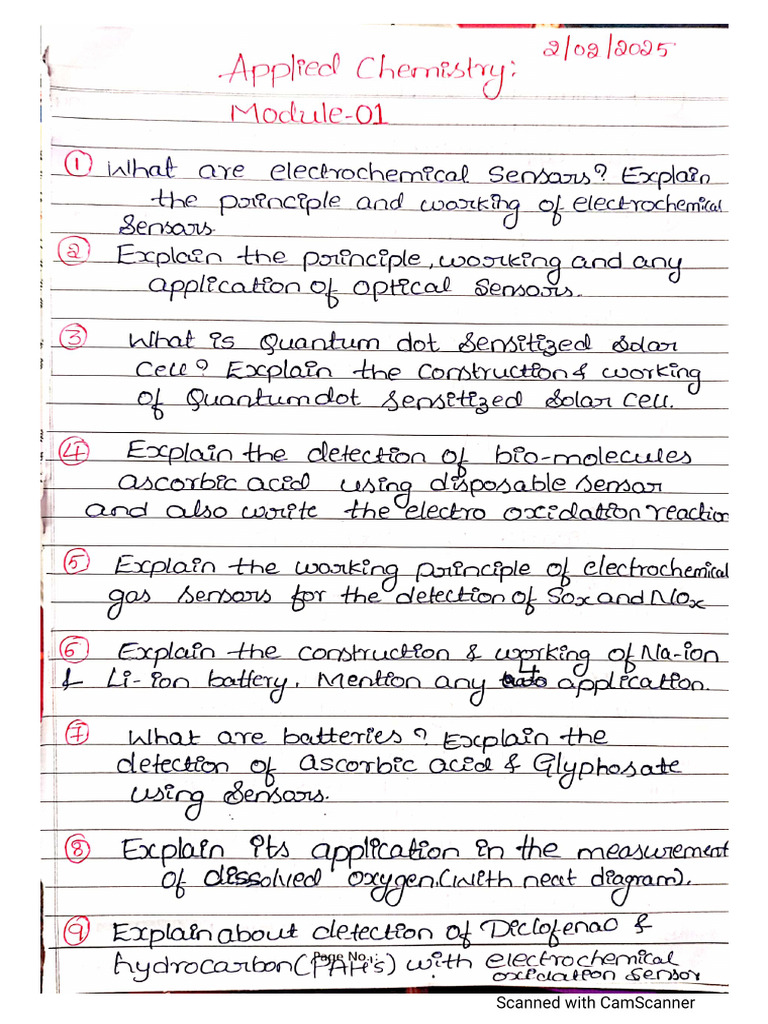 2/02/2025
Applied Chemistry:
Module-01
① What are electrochemical Sensors? Explain
the principle and working of electrochemical
Sensors.
② Explain the principle, working and any
application of optical Sensors.
③ What is Quantum dot Sensitized Solar
Cell? Explain the Construction & working
of Quantum dot Sensitized Solar Cell.
④ Explain the detection of bio-molecules
ascorbic acid using disposable sensor
and also write the electro oxidation reaction
⑤ Explain the working principle of electrochemical
gas sensors for the detection of Sox and NOx
⑥ Explain the construction & working of Na-ion
& Li-ion battery. Mention any 4 application.
⑦ What are batteries? Explain the
detection of Ascorbic acid & Glyphosate
using Sensors.
⑧ Explain its application in the measurement
of dissolved oxygen.(with neat diagram).
⑨ Explain about detection of Diclofenac &
hydrocarbon(PAH's) with electrochemical
oxidation sensor
Page No.:
Scanned with CamScanner